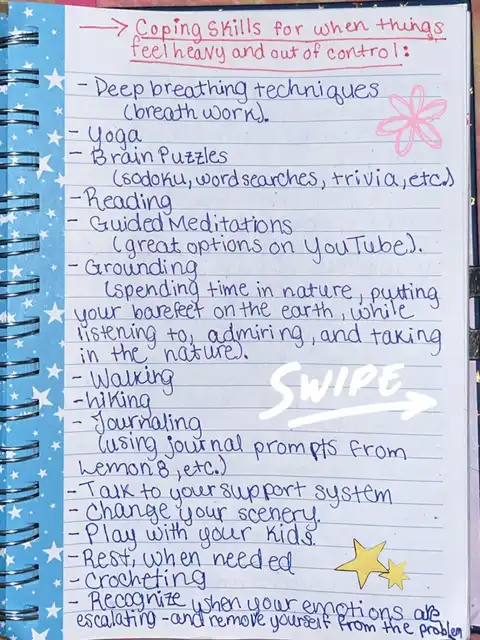 → Coping Skills for when things
feel heavy and out of control:
- Deep breathing techniques
(breath work).
- Yoga
- Brain Puzzles
(sodoku, word searches, trivia, etc.)
- Reading
- Guided Meditations
(great options on YouTube).
- Grounding
(spending time in nature, putting
your barefeet on the earth, while
listening to, admiring, and taking
in the nature).
- Walking
- hiking
- Journaling
(using journal prompts from
Lemon8, etc.)
- Talk to your support system
- Change your scenery.
- Play with your kids.
- Rest, when needed
- Crocheting
- Recognize when your emotions are
escalating - and remove yourself from the problem
SWIPE